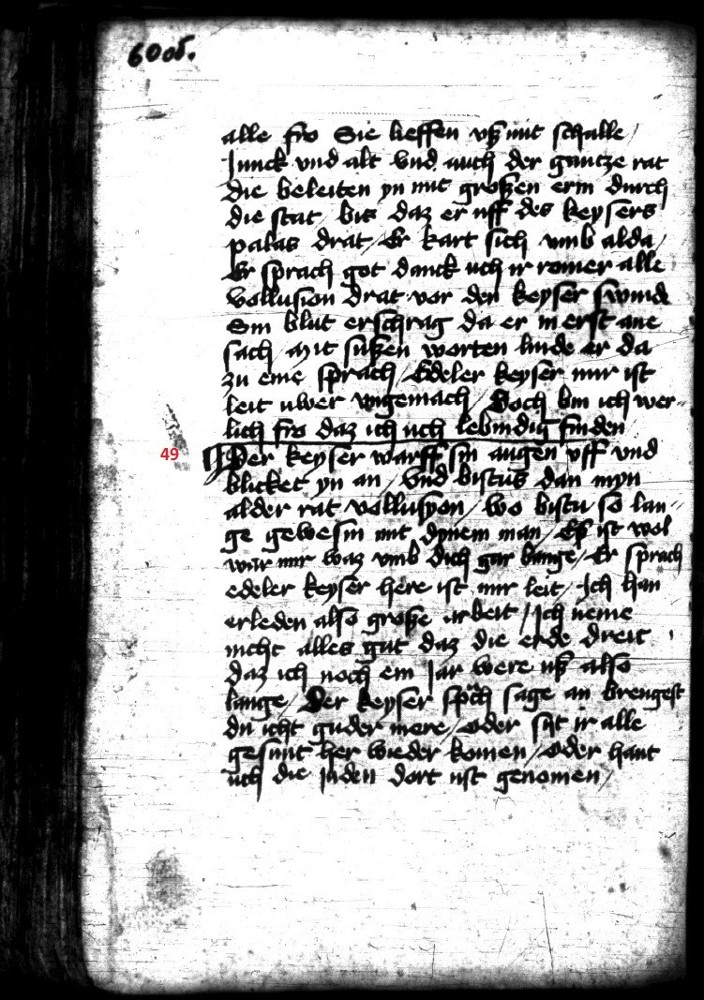 600b.
alle fro Sie lieffen vß mit schalle /
Junck vnd alt vnd auch der gantze rat
die beleiten yn mit großen ern durch
die stat / bis daz er uff des keysers
palas drat / Er kart sich vmb alda /
Er sprach got danck uch ir romer alle
vollusion drat vor den keyser swinde
Sin blut erschrag da er in erst ane
sach / Mit sußen worten linde er da
zu eme sprach / Edeler keyser mir ist
leit uwer vngemach / Doch bin ich wer-
lich fro daz ich uch lebindig finden
49 Der keyser warff sin augen uff vnd
blicket yn an / Vnd bistus dan myn
alder rat vollusyon / wo bistu so lan-
ge gewesin mit dynem man / Eß ist wol
war mir waz vmb dich gar bange / Er sprach
edeler keyser here ist mir leit / Ich han
erleden also große arbeit / Ich neme
nicht alles gut daz die erde dreit
daz ich noch ein Jar were uß also
lange / Der keyser spch sage an brengest
du icht guder mere / oder sijt ir alle
gesunt her wieder komen / oder hant
uch die Juden dort ist genomen /